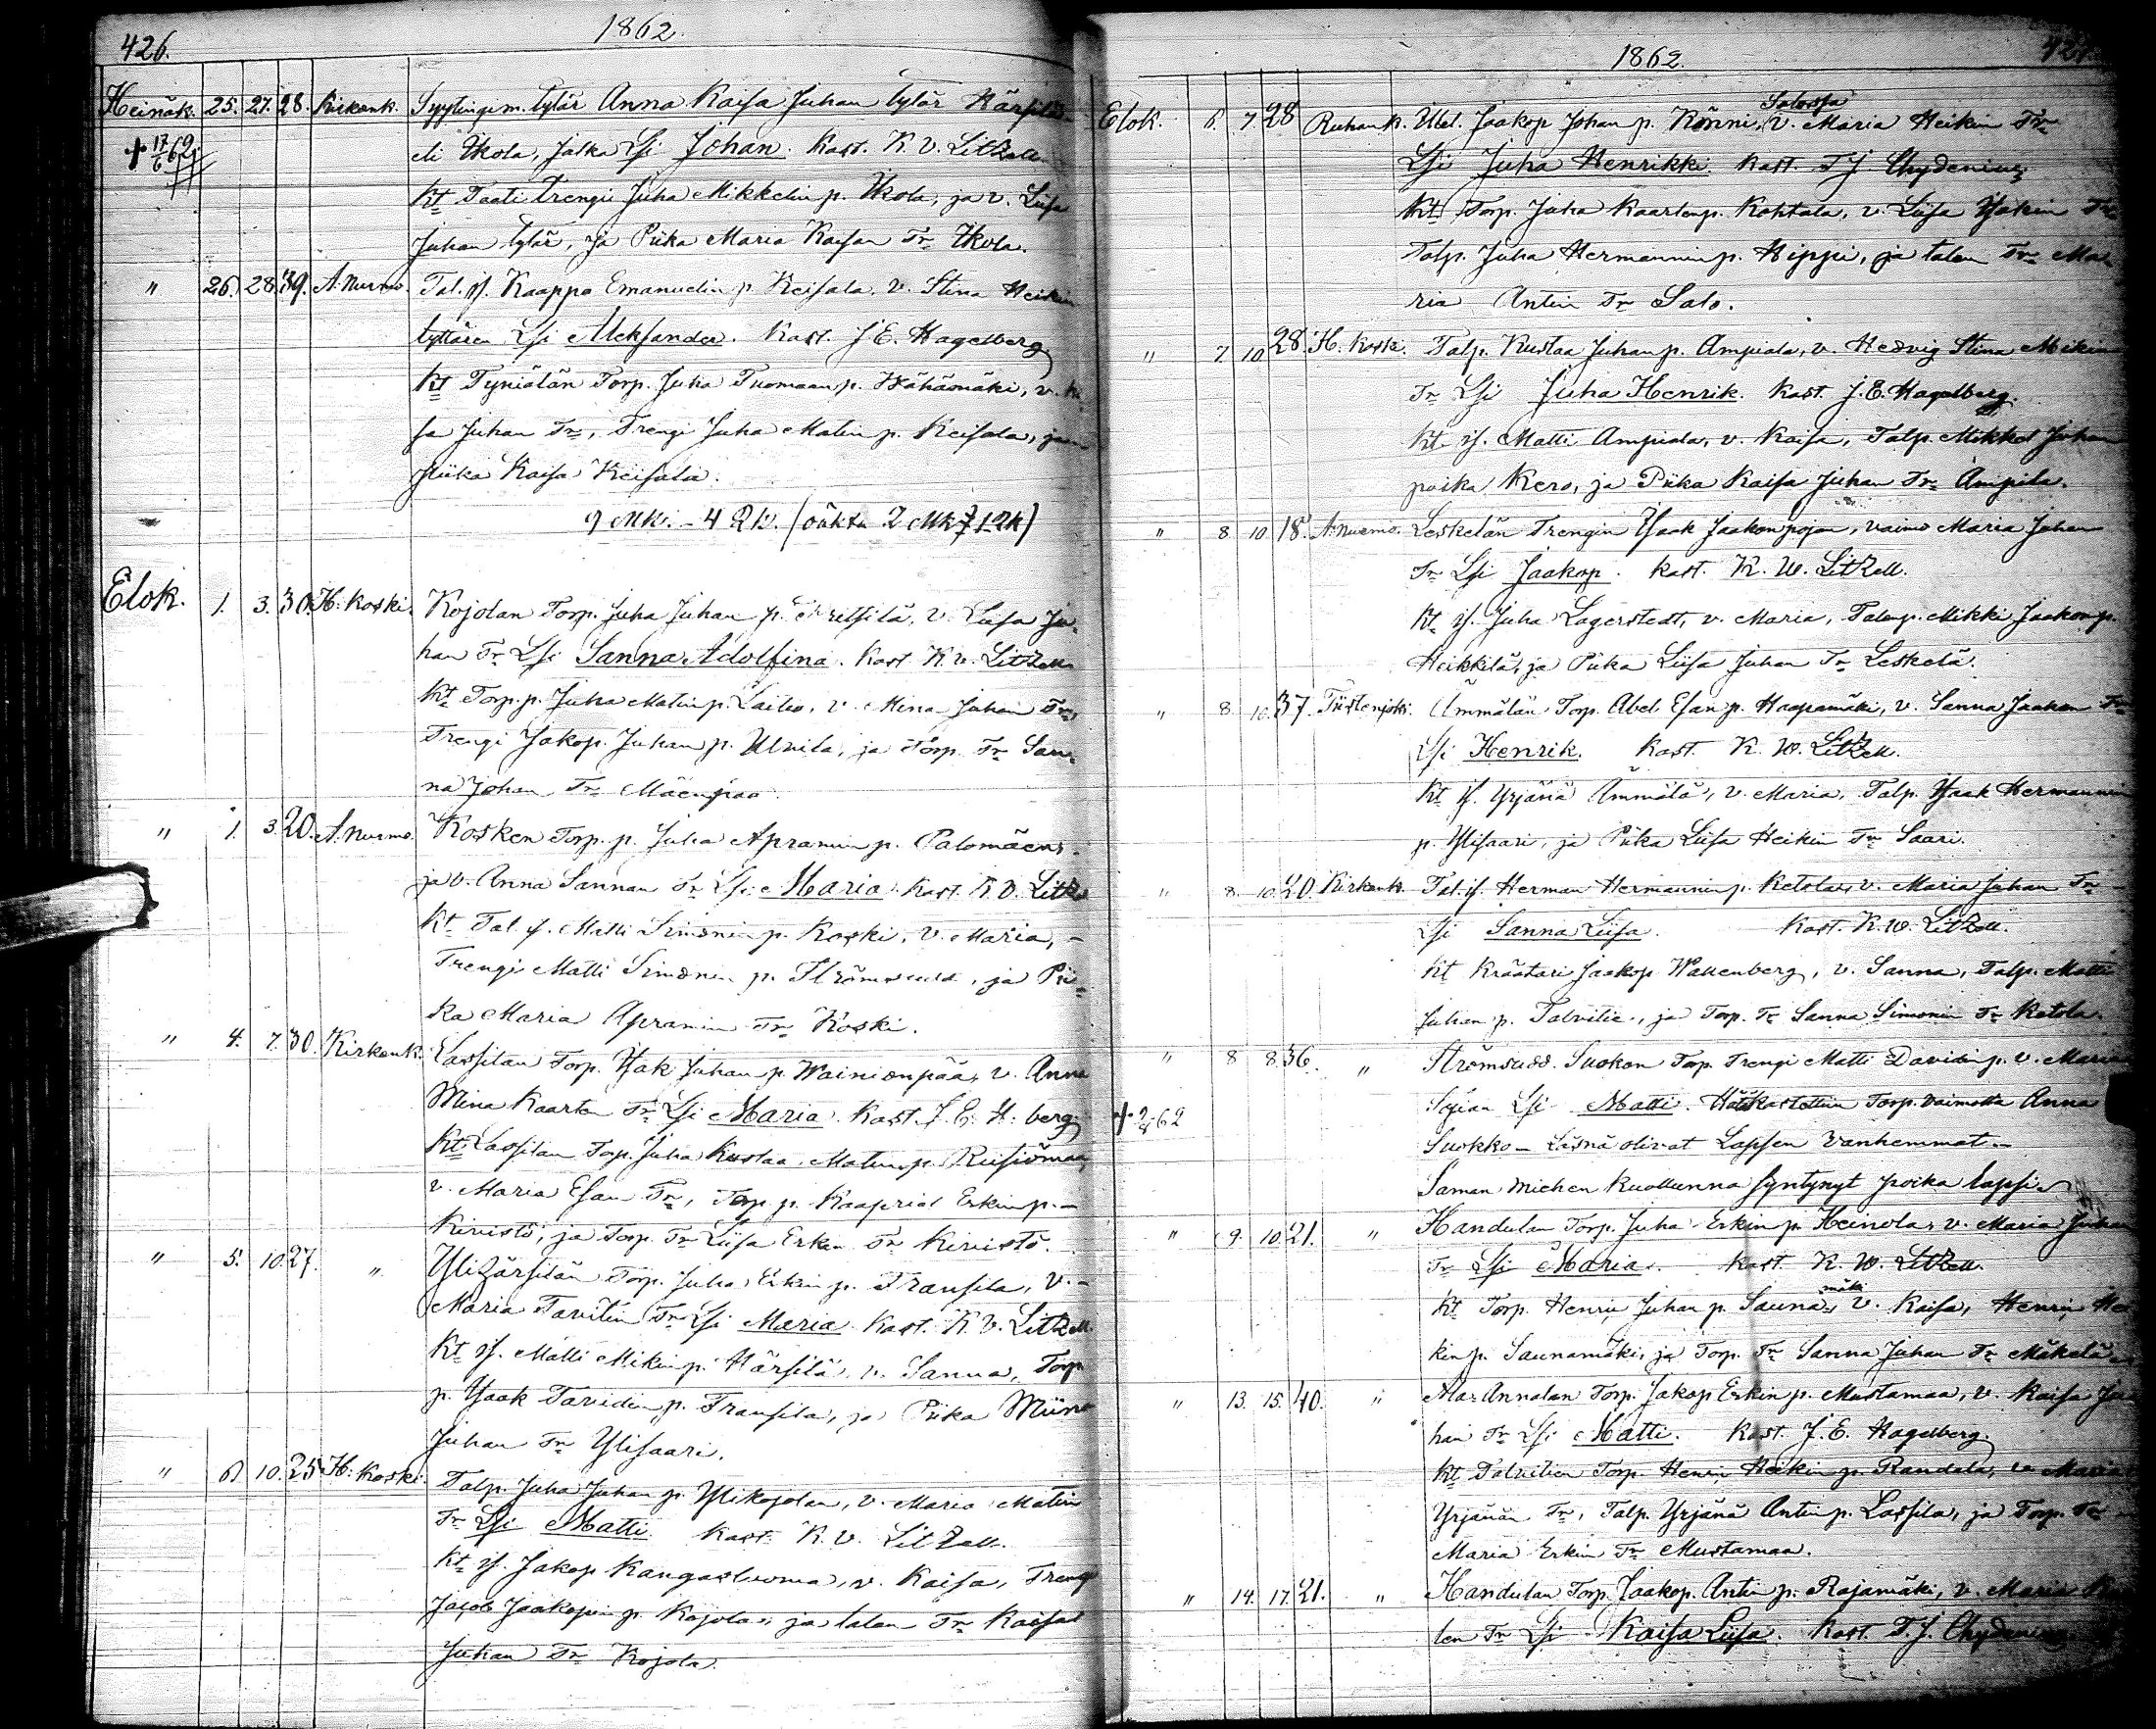 426.
1862.
Heinäk. 25. 27. 28. Kirkonk. Syytingim. tytär Anna Kaisa Juhan tytär Härsilä
eli Ikola, jalka Lsi Johan. Kast. K. V. Litzell
+ 17/6 62
Kt Taati trengi Juha Mikkelin p. Ikola, ja v. Liisa
Juhan tytär, ja Piika Maria Kaisan Tr Ikola.
" 26. 28. 39. A. Nurmo. Tal. is. Kaappo Emanuelin p. Keisala, v. Stina Heikin
tyttären Lsi Aleksander. Kast. J. E. Hagelberg
Kt Tyniälän Torp. Juha Tuomaan p. Wähämäki, v.
sa Juhan Tr, Trengi Juha Matin p. Keisala, ja
piika Kaisa Keisala.
9 Mk. - 4 Qk. (oäkta 2 Mk 7 1 Qk)
Elok. 1. 3. 30. H. Koski. Kojolan Torp. Juha Juhan p. v. Liisa Ju-
han Tr Lsi Sanna Adolfina. Kast K. v. Litzell
Kt Torp. p. Juha Matin p. Laitio, v. Mina Juhan Tr,
Trengi Jakop. Juhan p. Ulvila, ja Torp. Tr San-
na Johan Tr Mäenpää.
" 1. 3. 20. A. Nurmo. Kosken Torp. p. Juha Apramin p. Palomäen
ja v. Anna Sannan Tr Lsi Maria. Kast. K. V. Litz
Kt Tal. is. Matti Simonin p. Koski, v. Maria, -
Trengi Matti Simonin p. ja Pii-
ka Maria Apramin Tr Koski.
" 4. 7. 30. Kirkonk. Lassilan Torp. Isak Juhan p. Wainionpää, v. Anna
Mina Kaarlen Tr Lsi Maria. Kast J. E. H. berg
Kt Lassilan Torp. Juha Kustaa Matin p. Ruisiomaa,
v. Maria Esan Tr, Torp. p. Kaapriel Erkin p. -
Kivistö, ja Torp. Tr Liisa Erkin Tr Kivistö.
" 5. 10. 27. " Ylihärsilän Torp. Juha Erkin p. Fransila, v. -
Maria Tavitin Tr Lsi Maria Kast. K. V. Litzell
Kt is. Matti Mikin p. Härsilä, v. Sanna, Torp
p. Isaak Tavidin p. Fransila, ja Piika Miina
Juhan Tr Ylisaari.
" 6. 10. 25. H. Koski. Talp. Juha Juhan p. Ylikojolan, v. Maria Matin
Tr Lsi Matti. Kast. K. V. Litzell.
Kt is. Jakop Kangasluoma, v. Kaisa, Trengi
Jacob Jaakopin p. Kojola, ja talon Tr Kaisa
Juhan Tr Kojola.
427.
1862.
Salossa
Elok. 6. 7. 28 Ruhank. Itsel. Jaakop Johan p. Könni, v. Maria Heikin Tr
Lsi Juha Henrikki. Kast. F J Chydenius
Kt Torp. Juha Kaarlen p. Kohtala, v. Liisa Isakin Tr
Talp. Juha Hermannin p. Hippi, ja talon Tr Ma-
ria Antin Tr Salo.
" 7. 10 28. H. Koski. Talp. Kustaa Juhan p. Ampiala, v. Hedvig Stina Mikin
Tr Lsi Juha Henrik. Kast. J. E. Hagelberg.
Kt is. Matti Ampiala, v. Kaisa, Talp. Mikkel Juhan
poika Kero, ja Piika Kaisa Juhan Tr Ampila.
" 8. 10. 18. A. Nurmo. Leskelän Trengin Isaak Jaakonpojan, vaimo Maria Johan
Tr Lsi Jaakop. Kast. K. W. Litzell.
Kt is. Juha Lagerstedt, v. Maria, Talonp. Mikki Jaakon p.
Heikkilä, ja Piika Liisa Juhan Tr Leskelä.
" 8. 10. 37. Tiistenjoki. Ämmälän Torp. Abel Esan p. Haapamäki, v. Sanna Jaakon Tr
Lsi Henrik. Kast. K. W. Litzell.
Kt is. Yrjänä Ämmälä, v. Maria, Talp. Isaak Hermannin
p. Ylisaari, ja Piika Liisa Heikin Tr Saari.
" 8. 10. 20. Kirkonk. Tal. is. Herman Hermannin p. Ketola, v. Maria Juhan Tr
Lsi Sanna Liisa. Kast. K. W. Litzell.
Kt Kräätari Jaakop Wallenberg, v. Sanna, Talp. Matti
Juhan p. Talvitie, ja Torp. Tr Sanna Simonin Tr Ketola.
" 8 8. 36. " Strömsudd. Suokon Torp. Trengi Matti Davidin p. v. Maria
+ 2/4 62 Sofian Lsi Matti. Hätäkastettiin Torp. vaimolta Anna
Suokko - Läsnä olivat Lapsen Vanhemmat. -
Saman miehen kuollunna syntynyt poika lapsi.
" 9. 10. 21. " Handulan Torp. Juha Erkin p. Heinola, v. Maria Juhan
Tr Lsi Maria. Kast. K. W. Litzell.
mäki
Kt Torp. Henrik Juhan p. Sauna, v. Kaisa, Henrik Hei-
kin p. Saunamäki, ja Torp. Tr Sanna Juhan Tr Mäkelä
" 13. 15. 40. " Ala-Annalan Torp. Jakop Erkin p. Mustamaa, v. Kaisa Ju-
han Tr Lsi Matti. Kast. J. E. Hagelberg.
Kt Talvitien Torp. Henrik Heikin p. Randala, v. Maria
Yrjänän Tr, Talp. Yrjänä Antin p. Lassila, ja Torp. Tr
Maria Erkin Tr Mustamaa.
" 14. 17. 21. " Handulan Torp. Jaakop. Antin p. Rajamäki, v. Maria
len Tr Lsi Kaisa Liisa. Kast. F. J. Chydenius